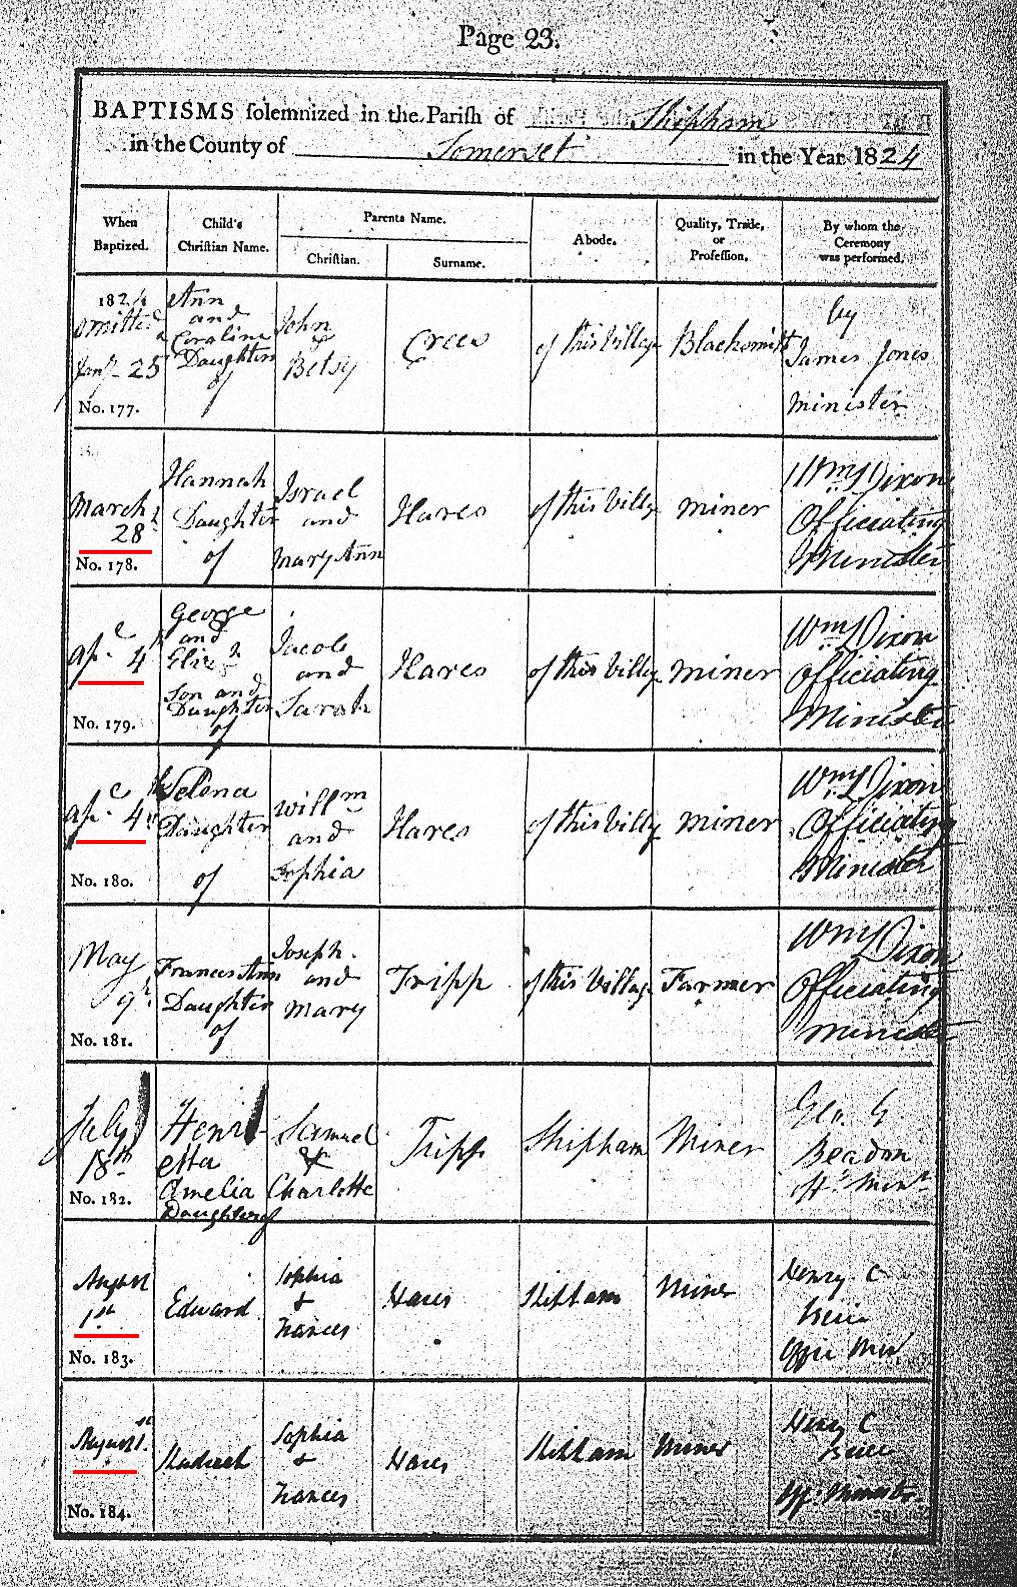 Page 23.
BAPTISMS solemnized in the Parish of Shipham
in the County of Somerset in the Year 1824
When Baptized.
Child's Christian Name.
Parents Name.
Christian.
Surname.
Abode.
Quality, Trade, or Profession.
By whom the Ceremony was performed.
1824
omitted
Jany. 25
No. 177.
Ann
and
Coraline
Daughters
of
John
&
Betsy
Crees
of this Village
Blacksmith
by
James Jones
Minister
March
28
No. 178.
Hannah
Daughter
of
Israel
and
Mary Ann
Hares
of this Villg
miner
Wm Dixon
Officiating
Minister
Apl 4th
No. 179.
George
and
Eliza
Son and
Daughter
of
Jacob
and
Sarah
Hares
of this Villg
miner
Wm Dixon
Officiating
Minister
Apl 4th
No. 180.
Selena
Daughter
of
Willm
and
Sophia
Hares
of this Villg
miner
Wm Dixon
Officiating
Minister
May
9th
No. 181.
Frances Ann
Daughter
of
Joseph
and
Mary
Tripp
of this Village
Farmer
Wm Dixon
Officiating
minister
July
18th
No. 182.
Henri-
etta
Amelia
Daughter of
Samuel
&
Charlotte
Tripp
Shipham
Miner
Geo. G
Beadon
offg Minr
August
1st
No. 183.
Edward
Sophia
&
Frances
Hares
Shipham
Miner
Henry C
Offic Min
August 1st
No. 184.
Sophia
&
Frances
Hares
Shipham
Miner
Henry C
Off. Minister